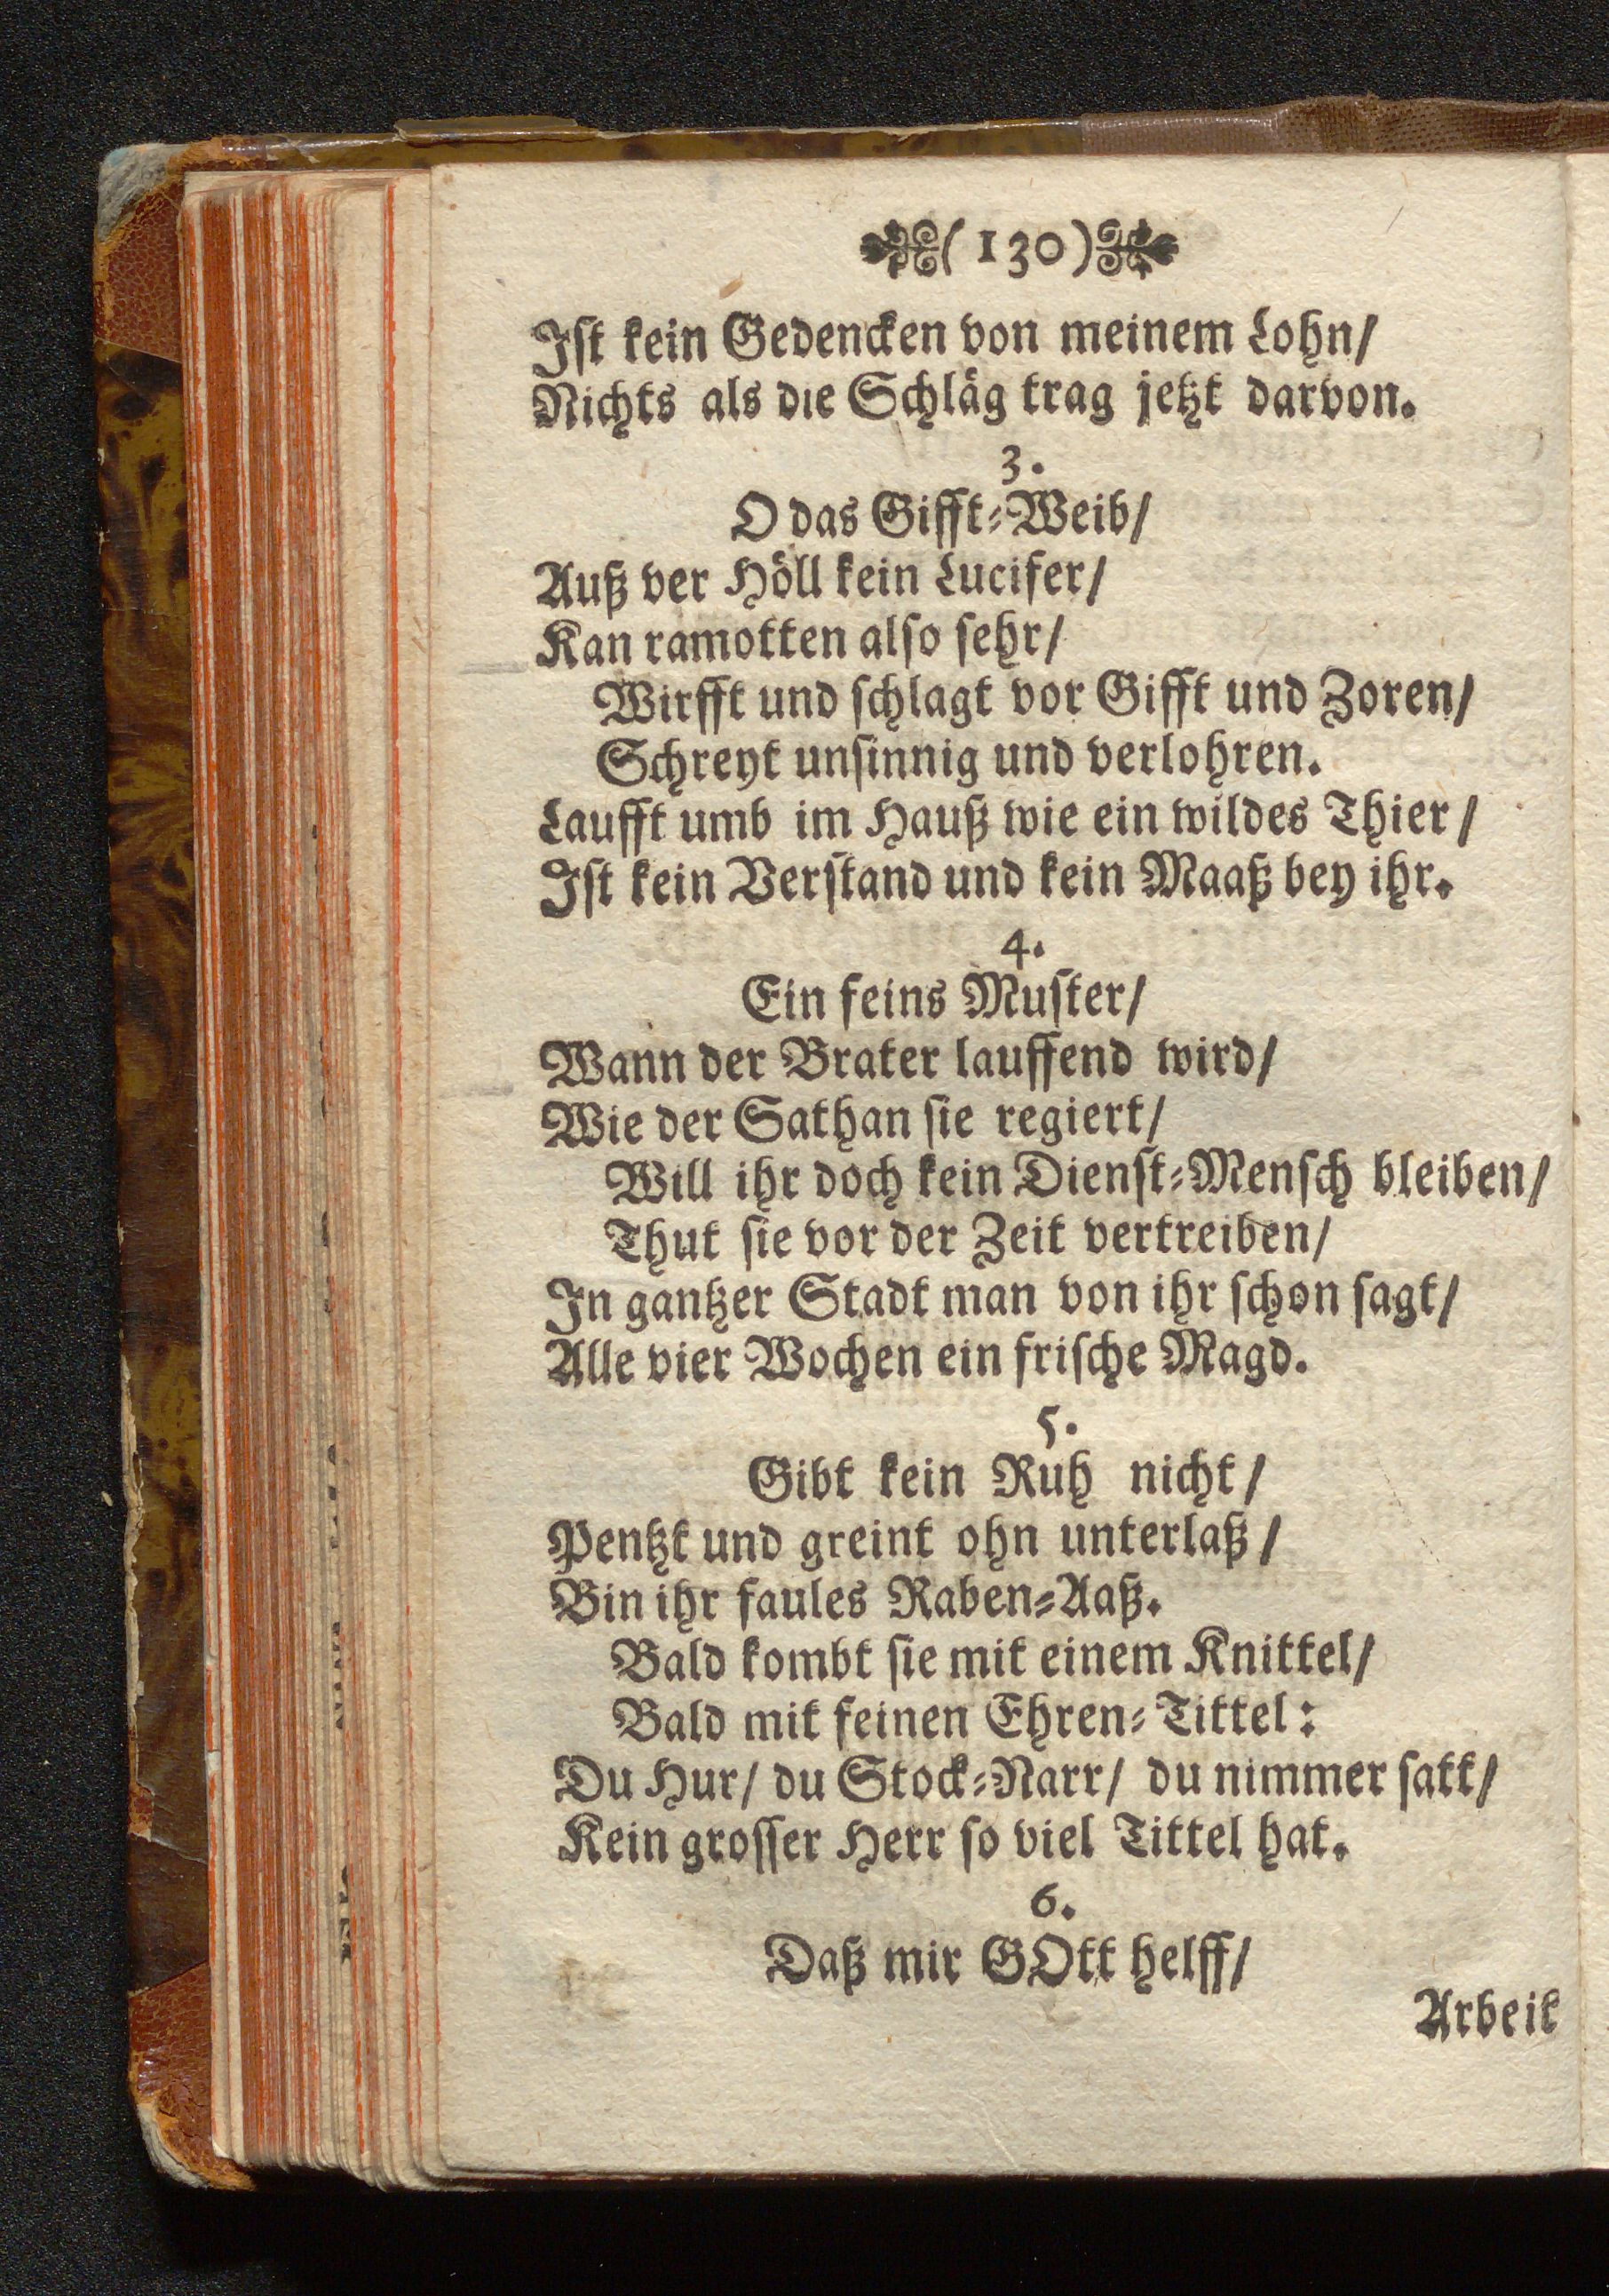 (130)
Ist kein Gedencken von meinem Lohn/
Nichts als die Schläg trag jetzt darvon.
3.
O das Gifft-Weib/
Auß ver Höll kein Lucifer/
Kan ramotten also sehr/
Wirfft und schlagt vor Gifft und Zoren/
Schreyt unsinnig und verlohren.
Laufft umb im Hauß wie ein wildes Thier/
Ist kein Verstand und kein Maaß bey ihr.
4.
Ein feins Muster/
Wann der Brater lauffend wird/
Wie der Sathan sie regiert/
Will ihr doch kein Dienst-Mensch bleiben/
Thut sie vor der Zeit vertreiben/
In gantzer Stadt man von ihr schon sagt/
Alle vier Wochen ein frische Magd.
5.
Gibt kein Ruh nicht/
Pentzt und greint ohn unterlaß/
Bin ihr faules Raben-Aaß.
Bald kombt sie mit einem Knittel/
Bald mit feinen Ehren-Tittel:
Du Hur/ du Stock-Narr/ du nimmer satt/
Kein grosser Herr so viel Tittel hat.
6.
Daß mir GOtt helff/
Arbeit